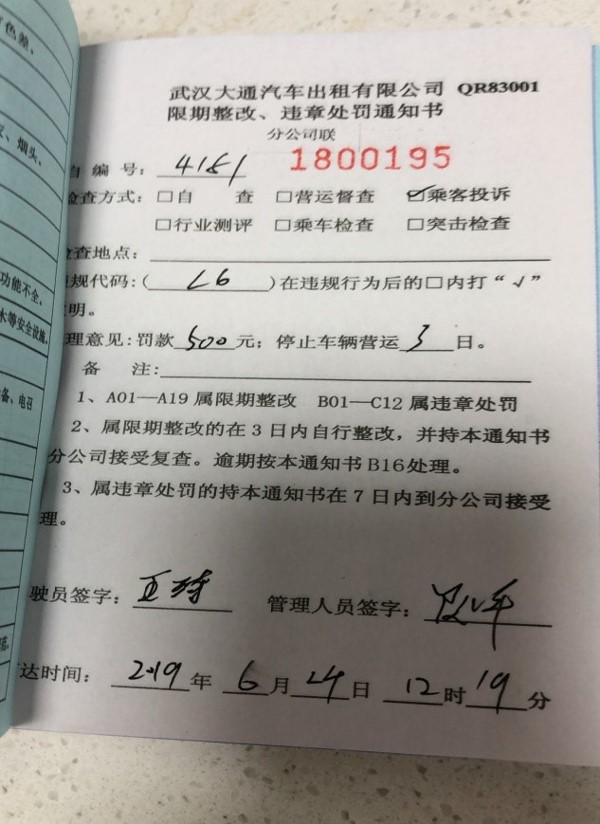 色差，
烟头、
功能不全，
木等安全设施，
备、电召
武汉大通汽车出租有限公司 QR83001
限期整改、违章处罚通知书
分公司联
自编号： 1800195
检查方式：☐自 查 ☐营运督查 ☑乘客投诉
☐行业测评 ☐乘车检查 ☐突击检查
查地点：
规代码：( L6 )在违规行为后的☐内打“√”
明。
理意见：罚款 500 元；停止车辆营运 3 日。
备 注：
1、A01—A19 属限期整改 B01—C12 属违章处罚
2、属限期整改的在 3 日内自行整改，并持本通知书
分公司接受复查。逾期按本通知书 B16 处理。
3、属违章处罚的持本通知书在 7 日内到分公司接受
理。
驶员签字： 管理人员签字：
达时间： 2019 年 6 月 日 12 时 19 分